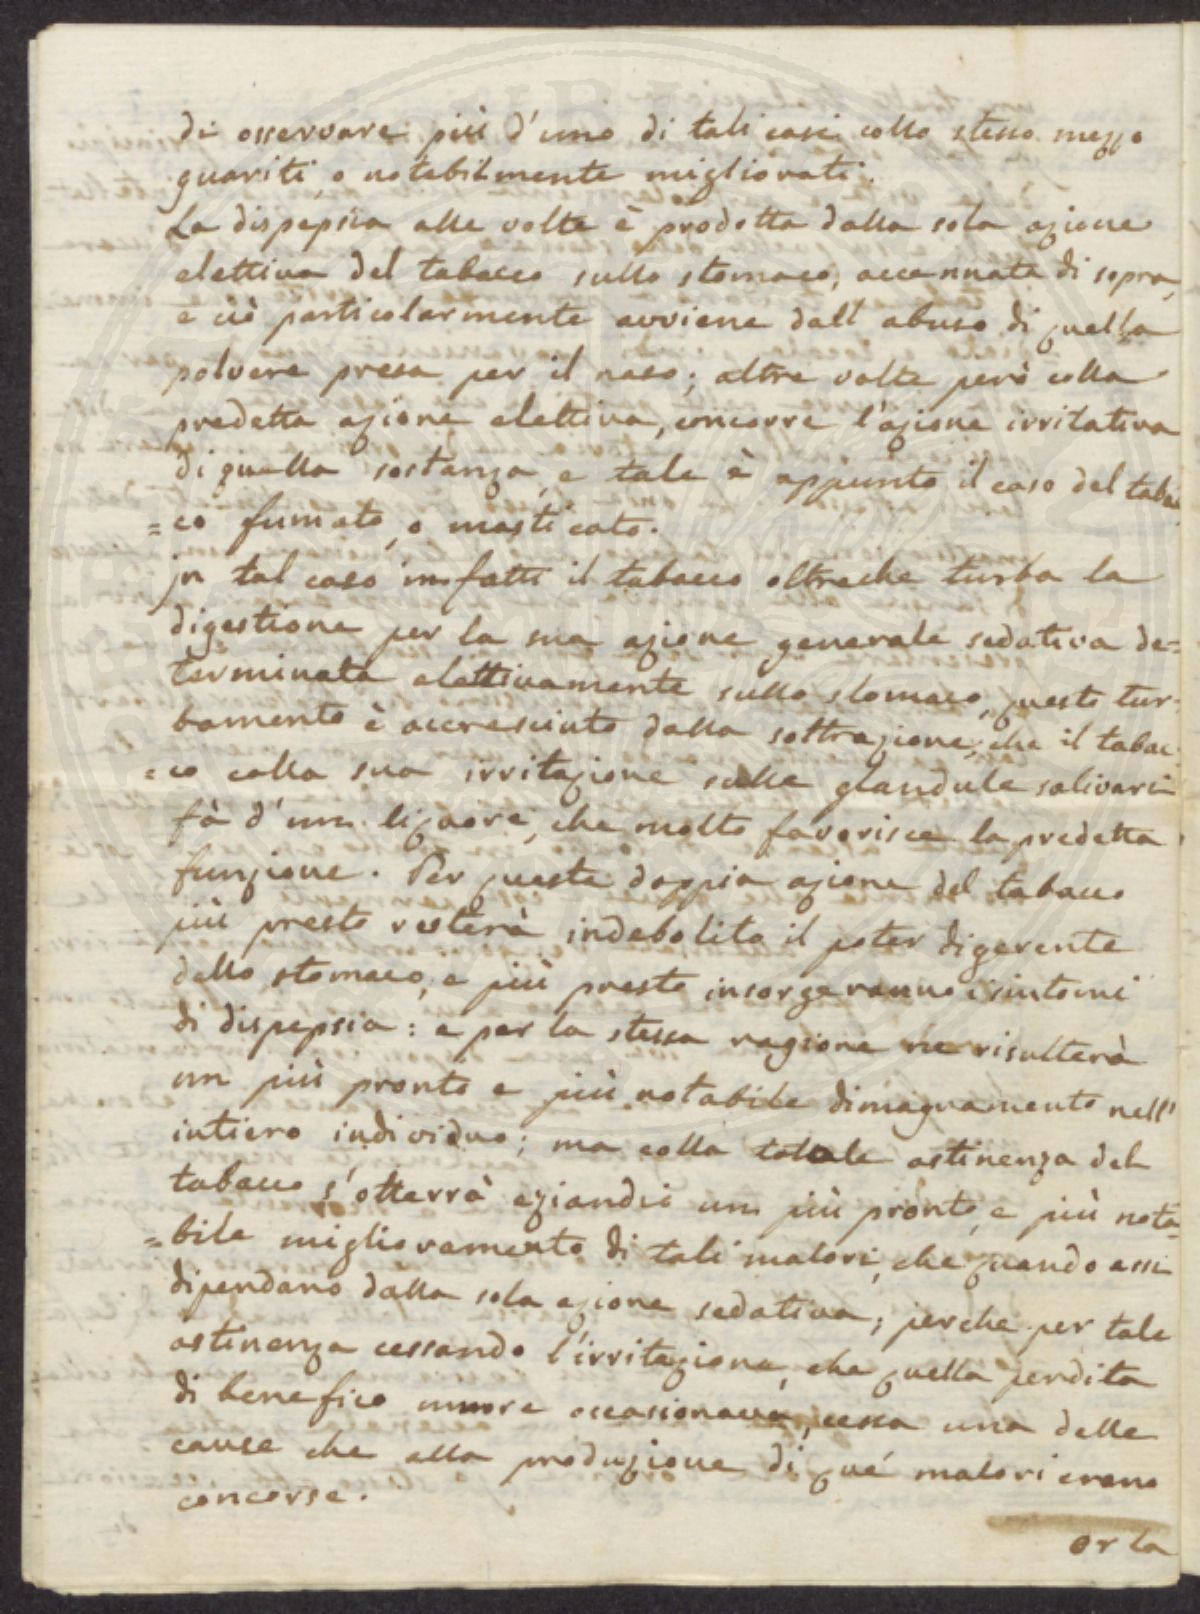 di osservare più d'uno di tali casi collo stesso mezzo
guariti, o notabilmente migliorati.
La dispepsia alle volte è prodotta dalla sola azione
elettiva del tabacco sullo stomaco, accennata di sopra,
e ciò particolarmente avviene dall'abuso di quella
polvere presa per il naso; altre volte però colla
predetta azione elettiva, concorre l'azione irritativa
di quella sostanza, e tale è appunto il caso del tabac
=co fumato, o masticato.
jn tal caso infatti il tabacco oltreche turba la
digestione per la sua azione generale sedativa de=
terminata elettivamente sullo stomaco, questo tur=
bamento è accresciuto dalla sottrazione, che il tabac
=co colla sua irritazione sulle glandule salivari
fà d'un liquore, che molto favorisce la predetta
funzione. Per questa doppia azione del tabacco
più presto resterà indebolito il poter digerente
dello stomaco, e più presto insorgeranno i sintomi
di dispepsia: e per la stessa ragione ne risulterà
un più pronto e più notabile dimagramento nell'
intiero individuo; ma colla totale astinenza del
tabacco s'otterrà eziandio un più pronto, e più nota
=bile miglioramento di tali malori, che quando essi
dipendano dalla sola azione sedativa; perche per tale
astinenza cessando l'irritazione, che quella perdita
di benefico umore occasionava, cessa una delle
cause che alla produzione di que' malori erano
concorse.
or la